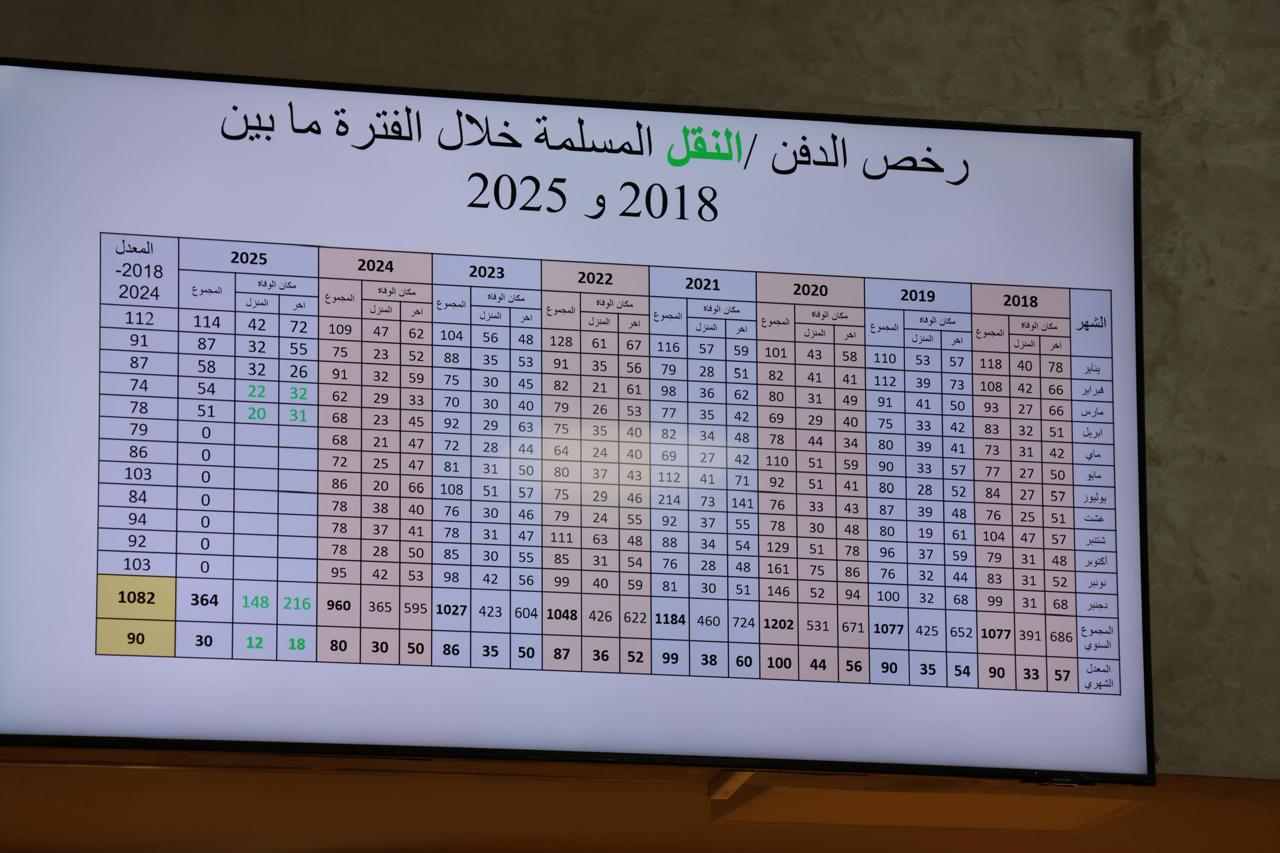 رخص الدفن /النقل المسلمة خلال الفترة ما بين
2018 و 2025
الشهر 2018 2019 2020 2021 2022 2023 2024 2025 المعدل 2018-2024
مكان الوفاة المجموع مكان الوفاة المجموع مكان الوفاة المجموع مكان الوفاة المجموع مكان الوفاة المجموع مكان الوفاة المجموع مكان الوفاة المجموع مكان الوفاة المجموع
اخر المنزل اخر المنزل اخر المنزل اخر المنزل اخر المنزل اخر المنزل اخر المنزل اخر المنزل
يناير 78 40 118 57 53 110 58 43 101 59 57 116 67 61 128 48 56 104 62 47 109 72 42 114 112
فبراير 66 42 108 73 39 112 41 41 82 51 28 79 56 35 91 53 35 88 52 23 75 55 32 87 91
مارس 66 27 93 50 41 91 49 31 80 62 36 98 61 21 82 45 30 75 59 32 91 26 32 58 87
ابريل 51 32 83 42 33 75 40 29 69 42 35 77 53 26 79 40 30 70 33 29 62 32 22 54 74
ماي 42 31 73 41 39 80 34 44 78 48 34 82 40 35 75 63 29 92 45 23 68 31 20 51 78
مايو 50 27 77 57 33 90 59 51 110 42 27 69 40 24 64 44 28 72 47 21 68 0 79
يوليوز 57 27 84 52 28 80 41 51 92 71 41 112 43 37 80 50 31 81 47 25 72 0 86
غشت 51 25 76 48 39 87 43 33 76 141 73 214 46 29 75 57 51 108 66 20 86 0 103
شتنبر 57 47 104 61 19 80 48 30 78 55 37 92 55 24 79 46 30 76 40 38 78 0 84
أكتوبر 48 31 79 59 37 96 78 51 129 54 34 88 48 63 111 47 31 78 41 37 78 0 94
نونبر 52 31 83 44 32 76 86 75 161 48 28 76 54 31 85 55 30 85 50 28 78 0 92
دجنبر 68 31 99 68 32 100 94 52 146 51 30 81 59 40 99 56 42 98 53 42 95 0 103
المجموع السنوي 686 391 1077 652 425 1077 671 531 1202 724 460 1184 622 426 1048 604 423 1027 595 365 960 216 148 364 1082
المعدل الشهري 57 33 90 54 35 90 56 44 100 60 38 99 52 36 87 50 35 86 50 30 80 18 12 30 90